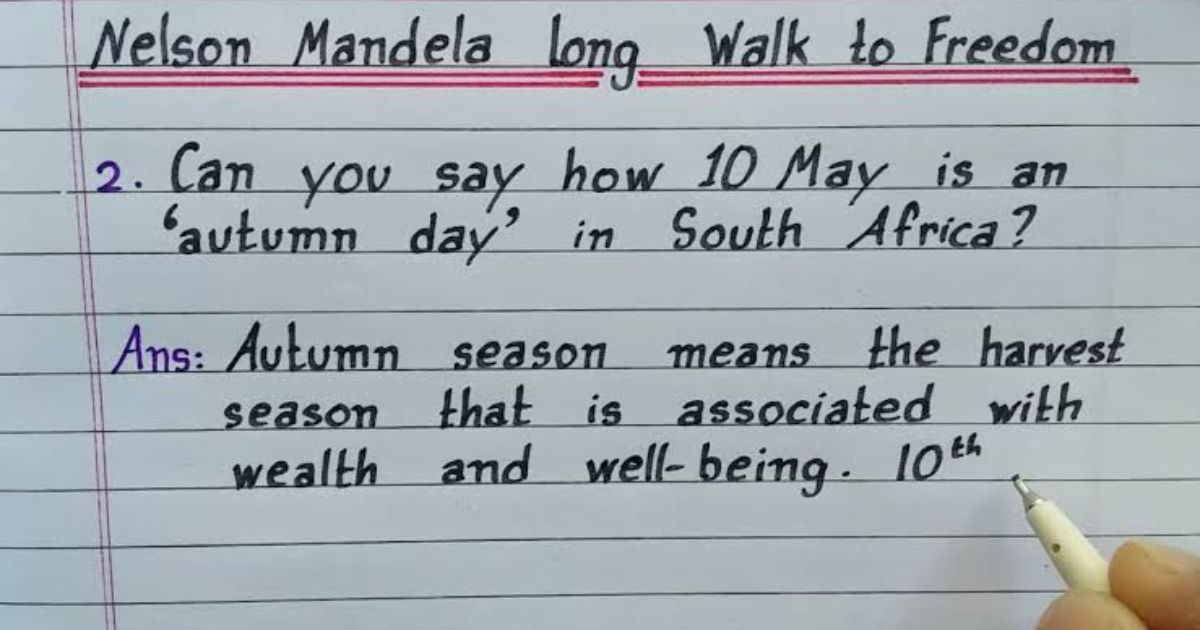 Nelson Mandela long Walk to Freedom
2. Can you say how 10 May is an
'autumn day' in South Africa?
Ans: Autumn season means the harvest
season that is associated with
wealth and well-being. 10th